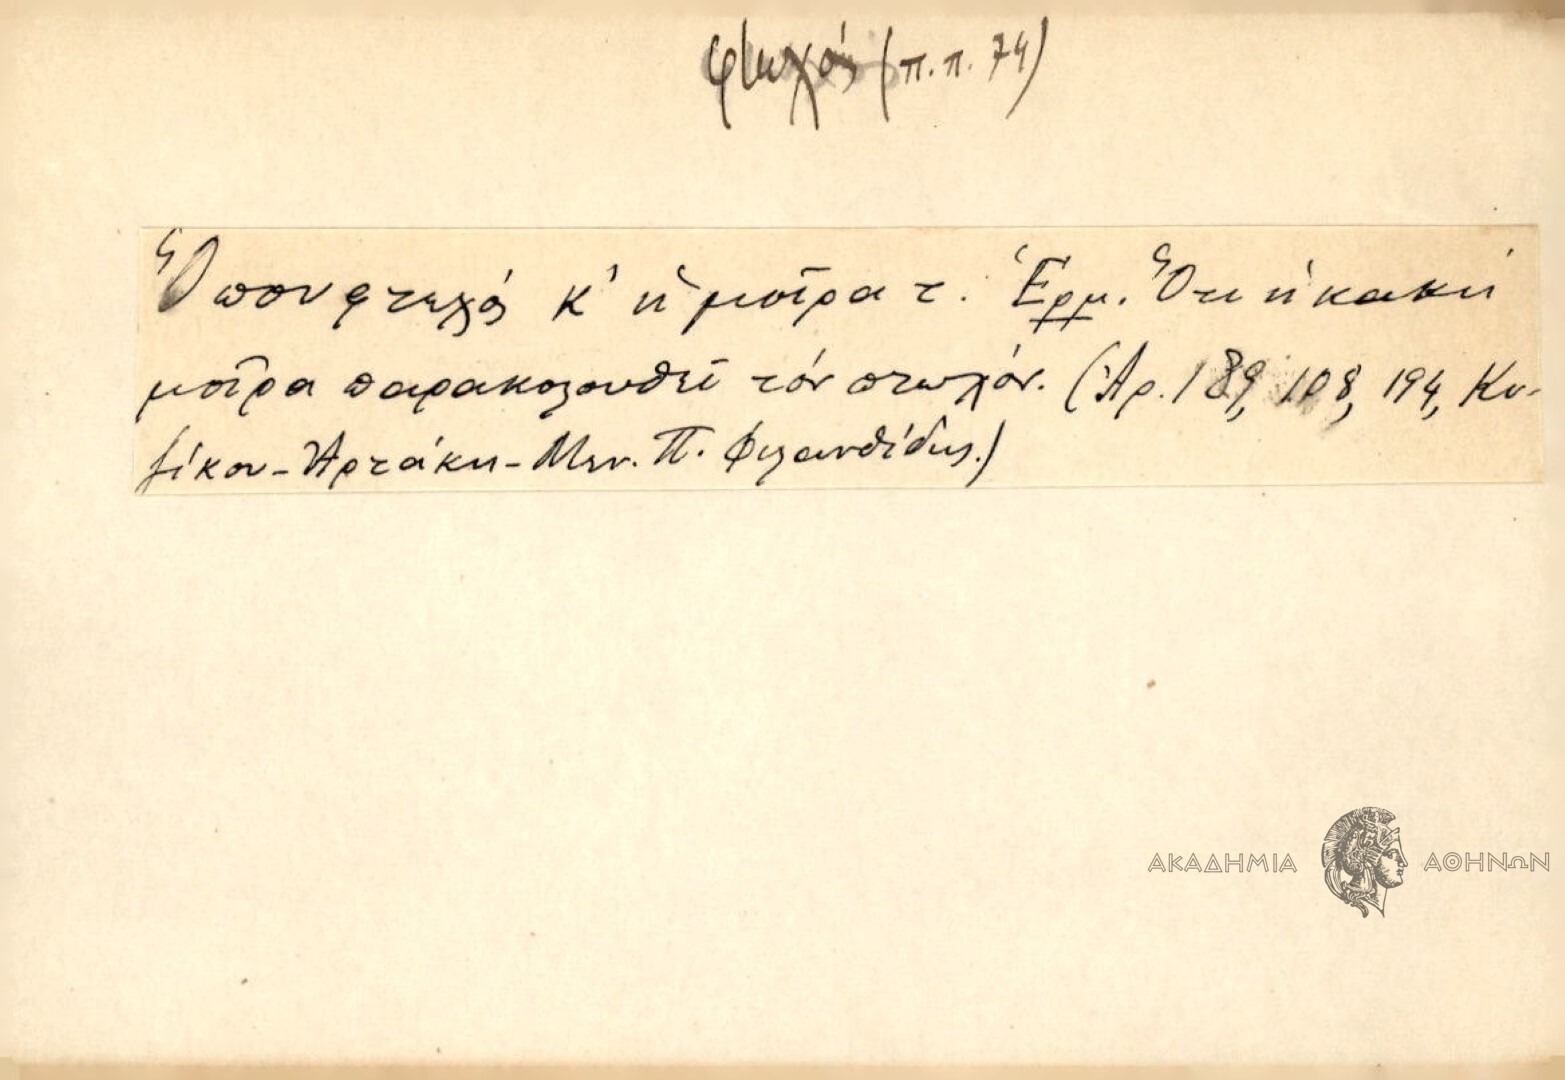 φτωχός (π.π. 74)
Ὅπου φτωχός κ' ἡ μοῖρα τ. Ἑρμ. Ὅτι ἡ κακή
μοῖρα παρακολουθεῖ τόν πτωχόν. (Ἀρ. 189, 108, 194, Κυ-
ζίκου - Ἀρτάκη - Μεν. Π. Φιλανθίδης.)
ΑΚΑΔΗΜΙΑ ΑΘΗΝΩΝ